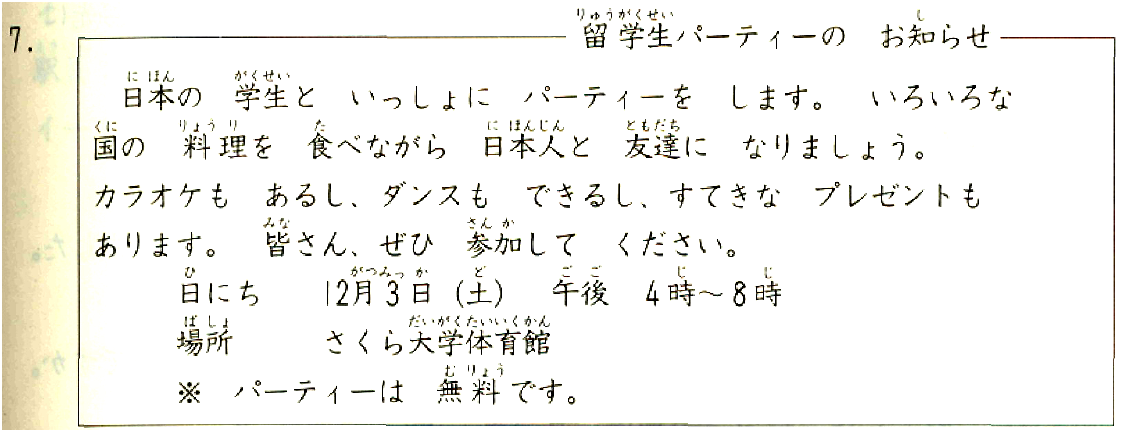 7.
留学生パーティーの お知らせ
日本の 学生と いっしょに パーティーを します。 いろいろな
国の 料理を 食べながら 日本人と 友達に なりましょう。
カラオケも あるし、ダンスも できるし、すてきな プレゼントも
あります。 皆さん、ぜひ 参加して ください。
日にち 12月3日(土) 午後 4時~8時
場所 さくら大学体育館
※ パーティーは 無料です。